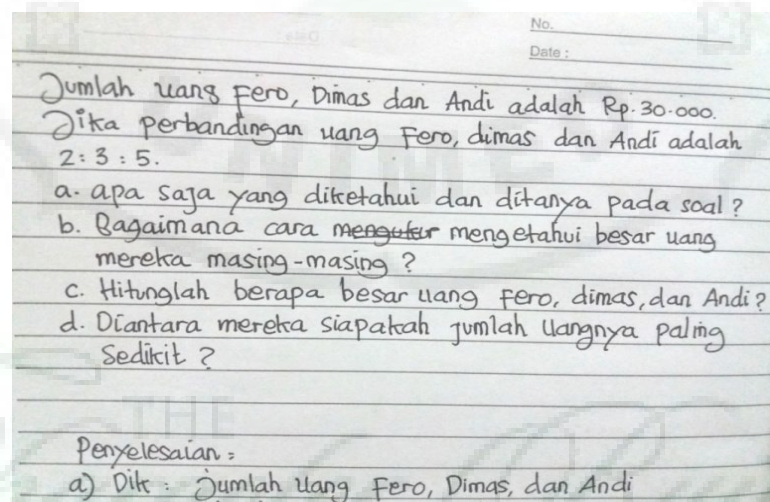 No.
Date :
Jumlah uang Fero, Dimas dan Andi adalah Rp. 30.000.
Jika perbandingan uang Fero, dimas dan Andi adalah
2 : 3 : 5.
a. apa saja yang diketahui dan ditanya pada soal?
b. Bagaimana cara mengukur mengetahui besar uang
mereka masing-masing ?
c. Hitunglah berapa besar uang Fero, dimas, dan Andi?
d. Diantara mereka siapakah jumlah uangnya paling
Sedikit ?
Penyelesaian :
a) Dik : Jumlah uang Fero, Dimas, dan Andi